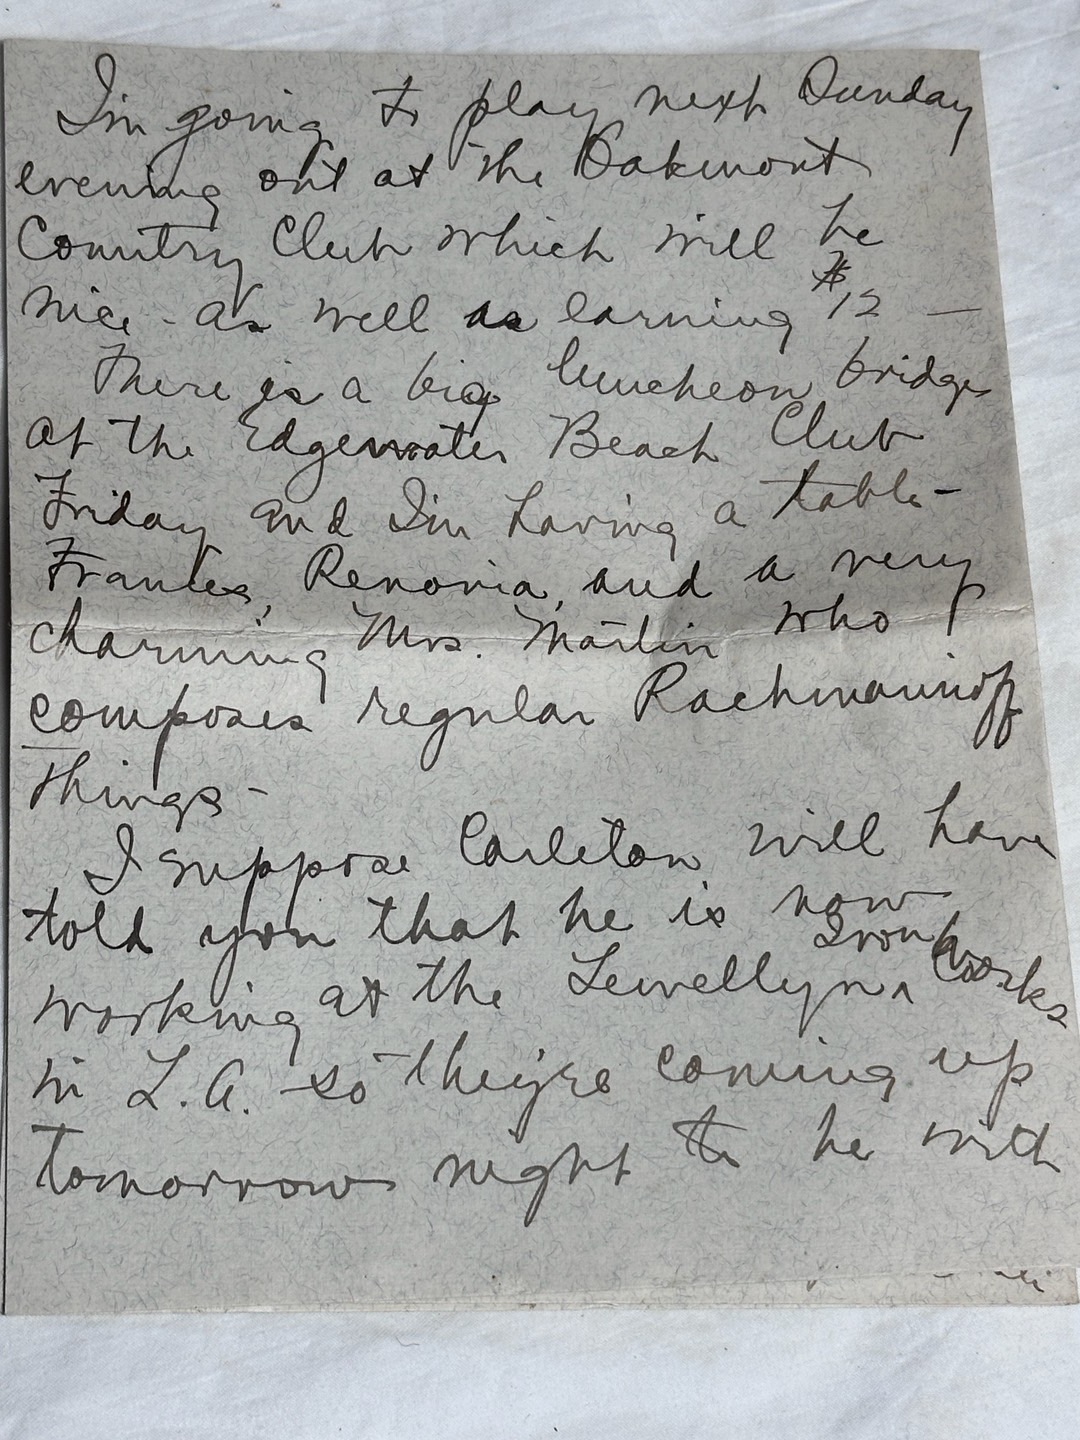 I'm going to play next Sunday
evening out at the Oakmont
Country Club which will be
nice - as well as earning $12 —
There is a big luncheon bridge
at the Edgewater Beach Club
Friday and I'm having a table -
Frances, Renovia, and a very
charming Mrs. Martin who
composes regular Rachmaninoff
things -
I suppose Carleton will have
told you that he is now
working at the Lewellyn ^ Iron Works
in L.A. so they're coming up
tomorrow night to be with